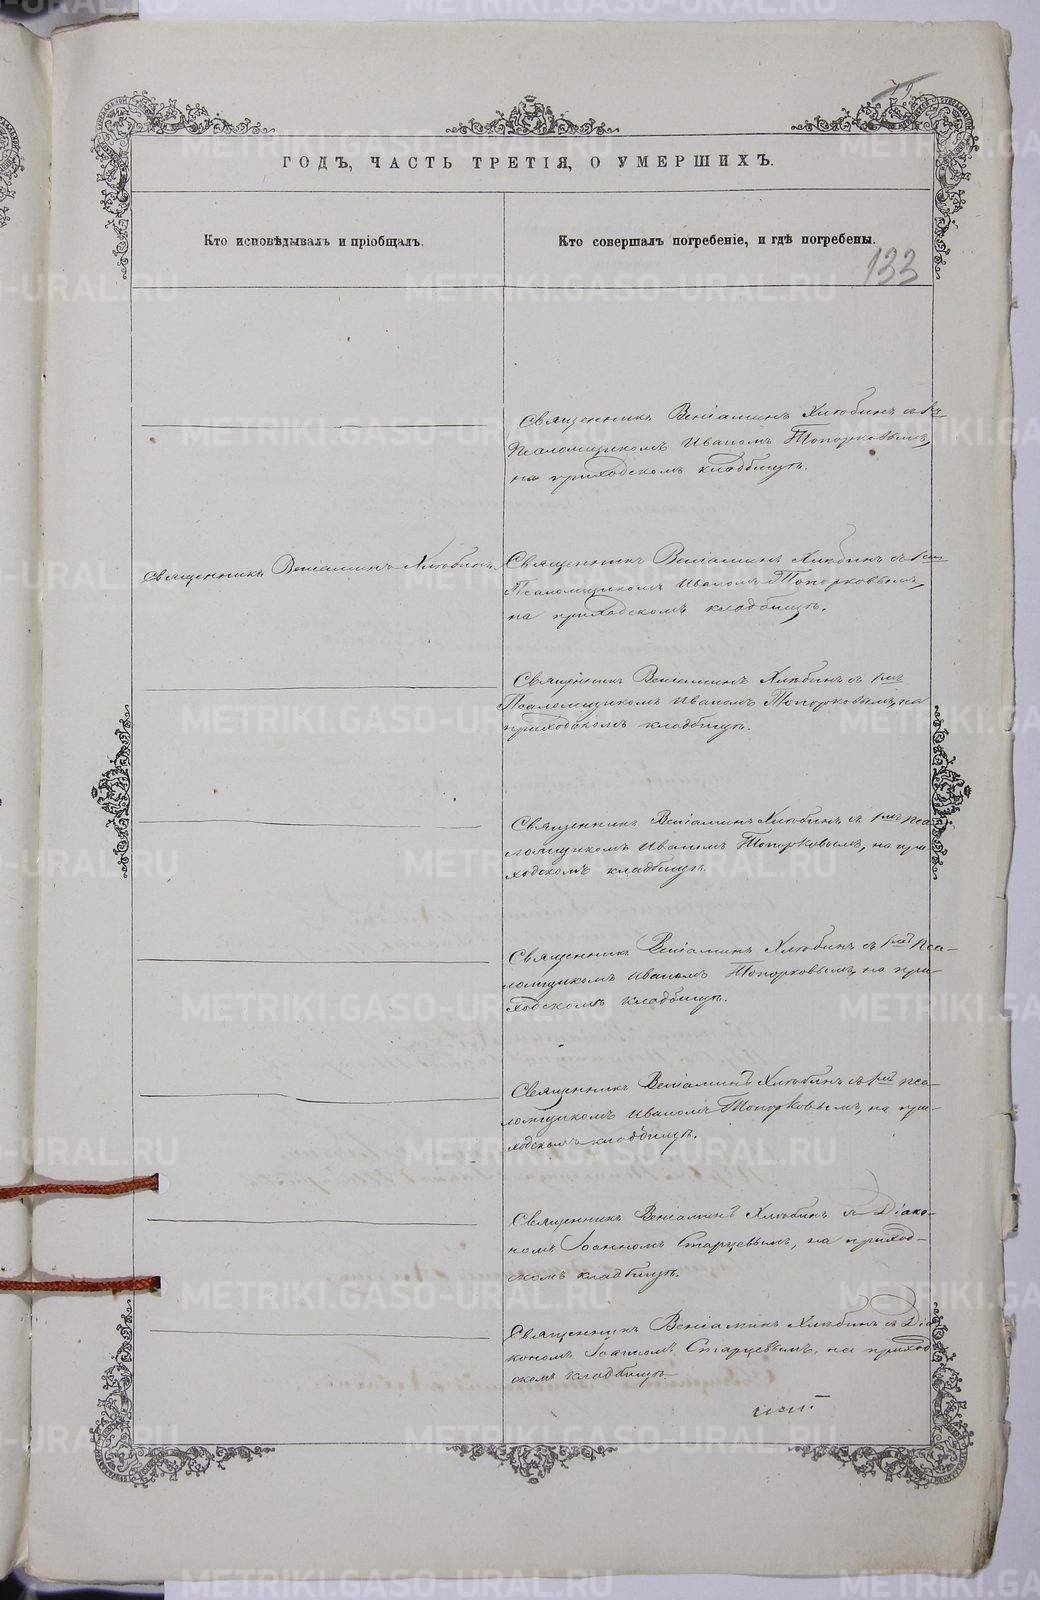 ГОДЪ, ЧАСТЬ ТРЕТІЯ, О УМЕРШИХЪ.
Кто исповѣдывалъ и пріобщалъ.
Кто совершалъ погребеніе, и гдѣ погребены.
133
Священникъ Веніаминъ Хлѣбинъ съ
Псаломщикомъ Иваномъ Топорковымъ,
на приходскомъ кладбищѣ.
Священникъ Веніаминъ Хлѣбинъ.
Священникъ Веніаминъ Хлѣбинъ съ
Псаломщикомъ Иваномъ Топорковымъ,
на приходскомъ кладбищѣ.
Священникъ Веніаминъ Хлѣбинъ съ
Псаломщикомъ Иваномъ Топорковымъ, на
приходскомъ кладбищѣ.
Священникъ Веніаминъ Хлѣбинъ съ 1мъ пса
ломщикомъ Иваномъ Топорковымъ, на при
ходскомъ кладбищѣ.
Священникъ Веніаминъ Хлѣбинъ съ 1мъ пса-
ломщикомъ Иваномъ Топорковымъ, на при-
ходскомъ кладбищѣ.
Священникъ Веніаминъ Хлѣбинъ съ 1мъ пса-
ломщикомъ Иваномъ Топорковымъ, на при-
ходскомъ кладбищѣ.
Священникъ Веніаминъ Хлѣбинъ съ Діако-
номъ Іоанномъ Старцевымъ, на приход-
скомъ кладбищѣ.
Священникъ Веніаминъ Хлѣбинъ съ Діа
кономъ Іоанномъ Старцевымъ, на приход
скомъ кладбищѣ.
METRIKI.GASO-URAL.RU